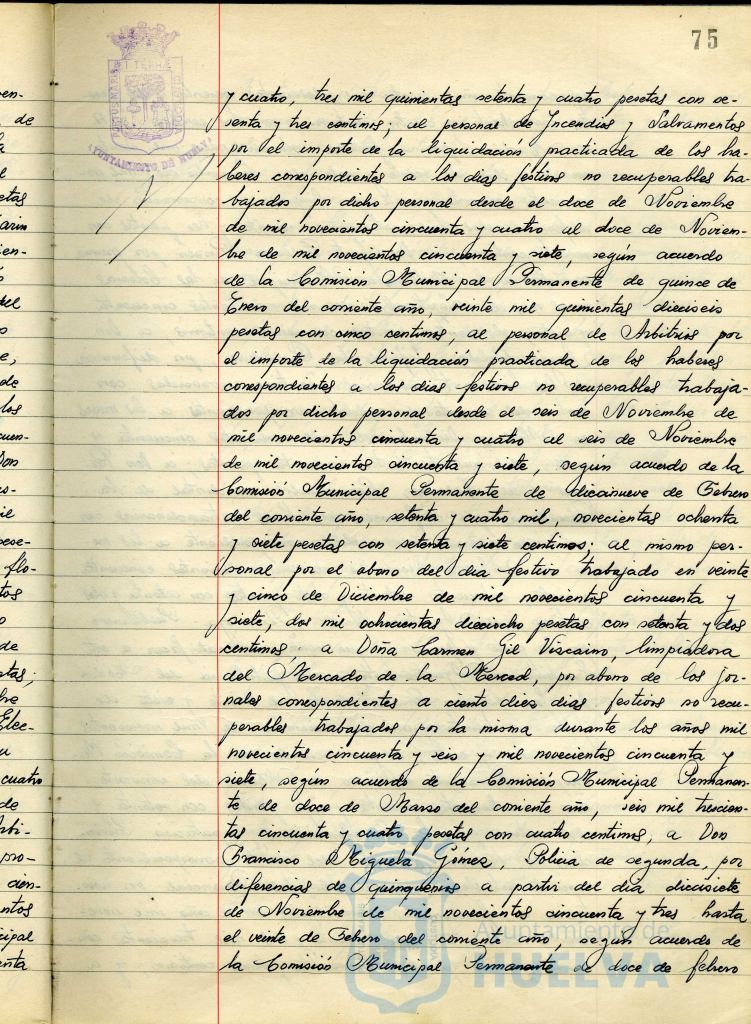 75
AYUNTAMIENTO DE HUELVA
y cuatro, tres mil quinientas setenta y cuatro pesetas con se-
senta y tres centimos; al personal de Incendios y Salvamentos
por el importe de la liquidación practicada de los ha-
beres correspondientes a los dias festivos no recuperables tra-
bajados por dicho personal desde el doce de Noviembre
de mil novecientos cincuenta y cuatro al doce de Noviem-
bre de mil novecientos cincuenta y siete, según acuerdo
de la Comisión Municipal Permanente de quince de
Enero del corriente año, veinte mil quinientas dieciseis
pesetas con cinco centimos, al personal de Arbitrios por
el importe de la liquidación practicada de los haberes
correspondientes a los dias festivos no recuperables trabaja-
dos por dicho personal desde el seis de Noviembre de
mil novecientos cincuenta y cuatro al seis de Noviembre
de mil novecientos cincuenta y siete, según acuerdo de la
Comisión Municipal Permanente de diecinueve de Febrero
del corriente año, setenta y cuatro mil, novecientas ochenta
y siete pesetas con setenta y siete centimos; al mismo per-
sonal por el abono del dia festivo trabajado en veinte
y cinco de Diciembre de mil novecientos cincuenta y
siete, dos mil ochocientas dieciocho pesetas con setenta y dos
centimos; a Doña Carmen Gil Viscaino, limpiadora
del Mercado de la Merced, por abono de los jor-
nales correspondientes a ciento diez dias festivos no recu-
perables trabajados por la misma durante los años mil
novecientos cincuenta y seis y mil novecientos cincuenta y
siete, según acuerdo de la Comisión Municipal Permanen-
te de doce de Marzo del corriente año, seis mil trescien-
tas cincuenta y cuatro pesetas con cuatro centimos, a Don
Francisco Miguela Gómez, Policia de segunda, por
diferencias de quinquenios a partir del dia diecisiete
de Noviembre de mil novecientos cincuenta y tres hasta
el veinte de Febrero del corriente año, según acuerdo de
la Comisión Municipal Permanente de doce de febrero
Ayuntamiento de
HUELVA